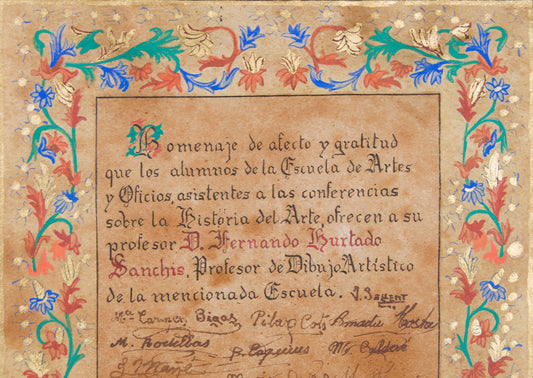 Homenaje de afecto y gratitud
que los alumnos de la Escuela de Artes
y Oficios, asistentes a las conferencias
sobre la Historia del Arte, ofrecen a su
profesor D. Fernando Hurtado
Sanchis, Profesor de Dibujo Artístico
de la mencionada Escuela.
Mª Carmen Pilar Amadeo
M.